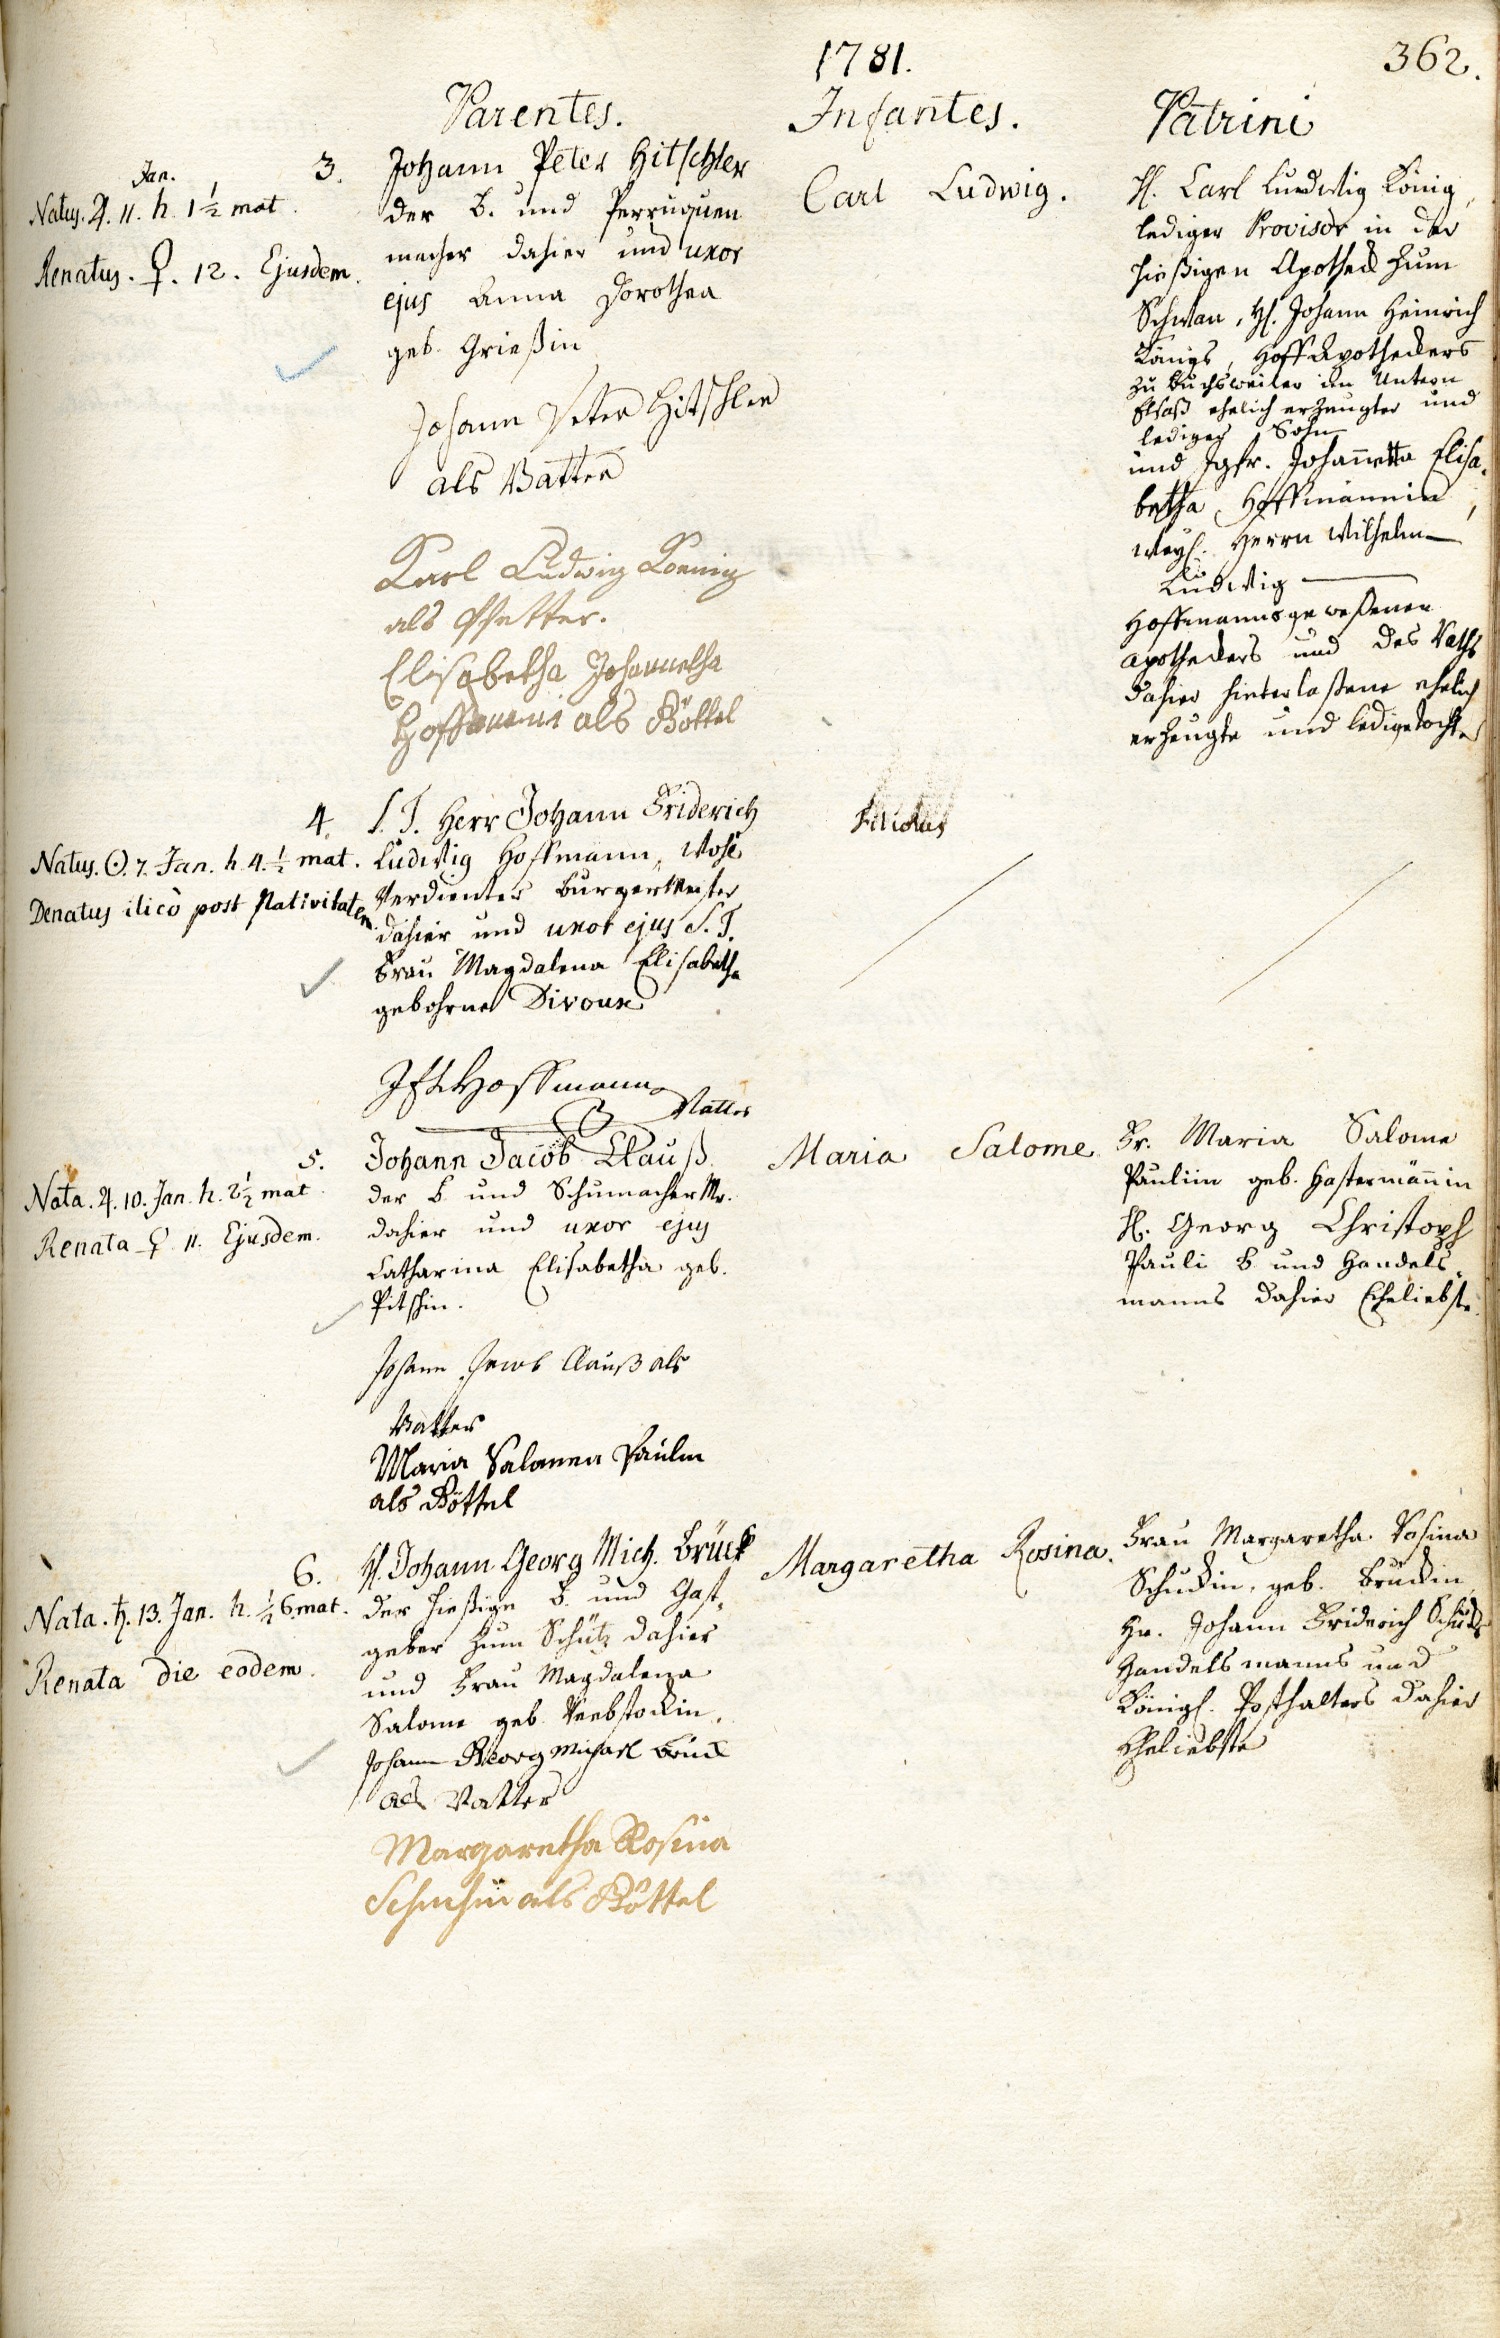 1781.
362.
Parentes.
Infantes.
Patrini
3.
Jan.
Natus. ♃. 11. h. 1 ½ mat.
Renatus. ♀. 12. Ejusdem.
Johann Peter Hitschler
der B. und Perruquen
macher dahier und uxor
ejus Anna Dorothea
geb. Grießin
Johann Peter Hitschler
als Vatter
Karl Ludwig Koenig
als Pfetter.
Elisabetha Johannetha
Hoffmanni als Göttel
Carl Ludwig.
H. Carl Ludwig König,
lediger Provisor in der
hießigen Apotheck zum
Schwan, H. Johann Heinrich
Königs, Hoff Apotheckers
zu Buchsweiler im Untern
Elsaß ehelich erzeugter und
lediger Sohn
und Jgfr. Johannetta Elisa-
betha Hoffmännin,
weyl. Herrn Wilhelm
Ludwig
Hoffmanns geweßenen
apotheckers und des Raths
dahier hinterlaßene ehelich
erzeugte und ledige tochter
4.
Natus. ☉. 7. Jan. h. 4. ½ mat.
Denatus ilicò post Nativitatem
S. T. Herr Johann Friderich
Ludwig Hoffmann, Wohl
Verdienter Burgermeister
dahier und uxor ejus S. T.
Frau Magdalena Elisabetha
gebohrne Divoux
JFLHoffmann
Vatter
Filiolus
5.
Nata. ♃. 10. Jan. h. 2 ½ mat.
Renata ♀ 11. Ejusdem.
Johann Jacob Clauß
der B. und Schumacher Mr.
dahier und uxor ejus
Catharina Elisabetha geb.
Pitschin.
Johann Jacob Clauß als
Vatter
Maria Salomea Paulin
als Göttel
Maria Salome
Fr. Maria Salome
Pauliin geb. Hastermännin
H. Georg Christoph
Pauli B. und Handels-
manns dahier Eheliebste
6.
Nata. ♄. 13. Jan. h. ½ 6. mat.
Renata die eodem.
H. Johann Georg Mich. Brück
der hießige B. und Gast-
geber zum Schütz dahier
und Frau Magdalena
Salome geb. Reebstöckin.
Johann Georg Michael Brück
als Vatter
Margaretha Rosina
als Göttel
Margaretha Rosina.
Frau Margaretha Rosina
Schuckin, geb. Brückin
Hn. Johann Friderich Schuck
Handelsmanns und
Königl. Posthalters dahier
Eheliebste